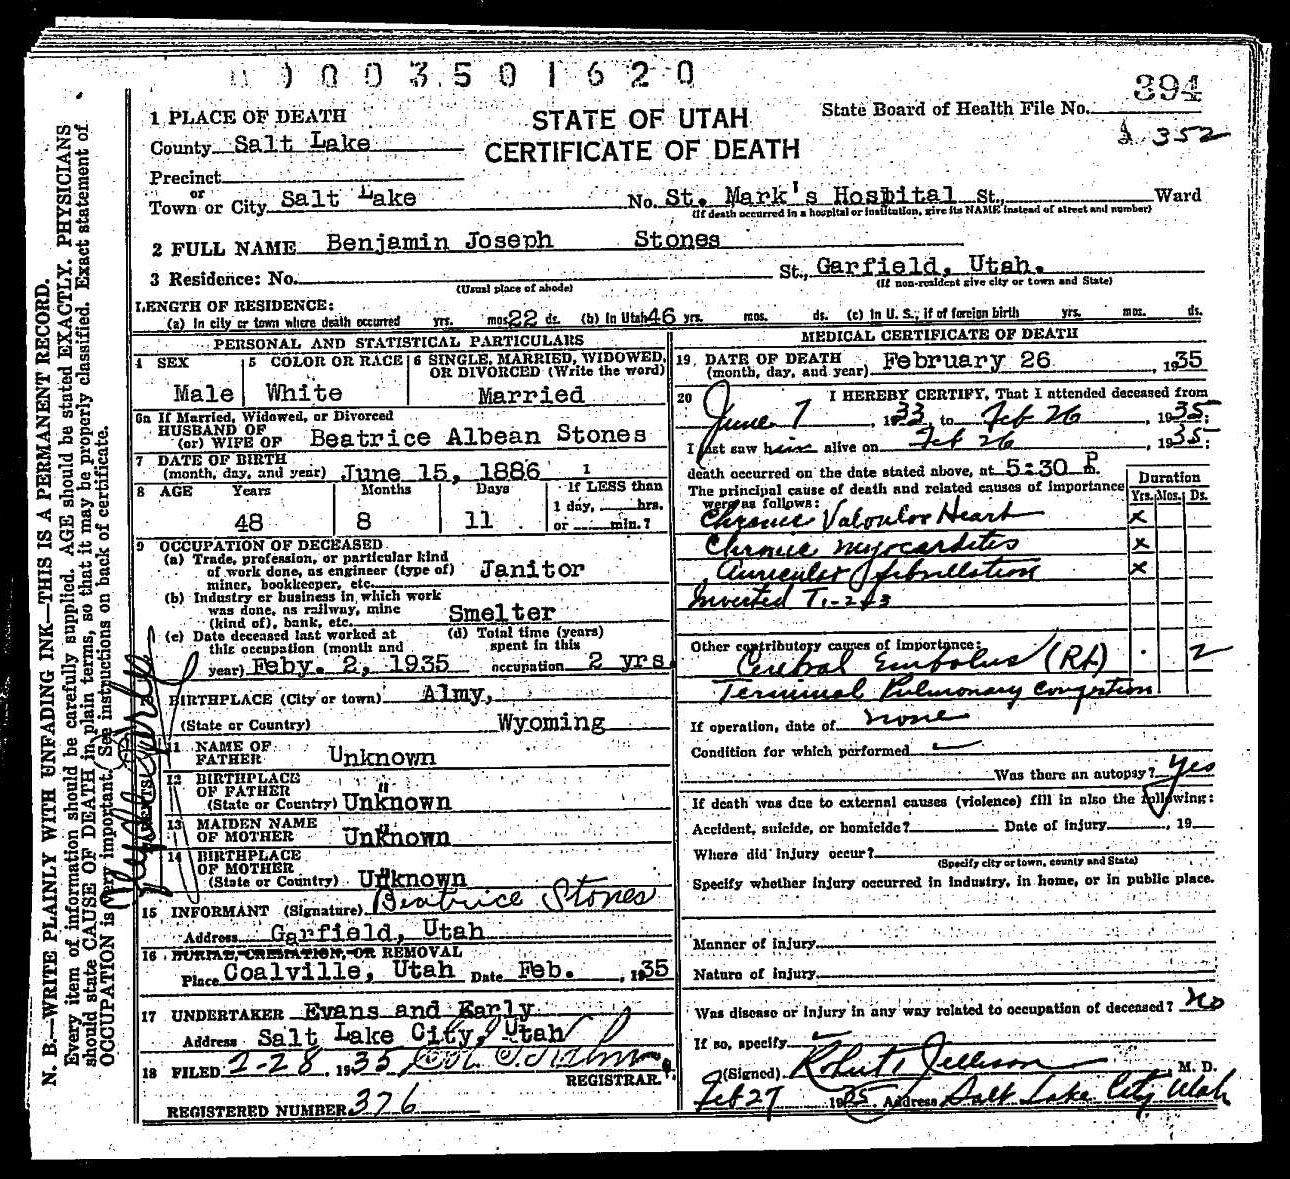 0 0 3 5 0 1 6 2 0
394
352
State Board of Health File No.
STATE OF UTAH
CERTIFICATE OF DEATH
1 PLACE OF DEATH
County Salt Lake
Precinct
or
Town or City Salt Lake No. St. Mark's Hospital St., Ward
(If death occurred in a hospital or institution, give its NAME instead of street and number)
2 FULL NAME Benjamin Joseph Stones
3 Residence: No. St., Garfield, Utah.
(Usual place of abode) (If non-resident give city or town and State)
LENGTH OF RESIDENCE:
(a) In city or town where death occurred yrs. mos. 22 ds. (b) In Utah 46 yrs. mos. ds. (c) In U. S., if of foreign birth yrs. mos. ds.
PERSONAL AND STATISTICAL PARTICULARS
4 SEX 5 COLOR OR RACE 6 SINGLE, MARRIED, WIDOWED, OR DIVORCED (Write the word)
Male White Married
6a If Married, Widowed, or Divorced
HUSBAND OF
(or) WIFE OF Beatrice Albean Stones
7 DATE OF BIRTH
(month, day, and year) June 15, 1886
8 AGE Years Months Days If LESS than
1 day, hrs.
48 8 11 or min.?
9 OCCUPATION OF DECEASED
(a) Trade, profession, or particular kind
of work done, as engineer (type of) Janitor
miner, bookkeeper, etc.
(b) Industry or business in which work
was done, as railway, mine Smelter
(kind of), bank, etc.
(c) Date deceased last worked at (d) Total time (years)
this occupation (month and spent in this
year) Feby. 2, 1935 occupation 2 yrs.
BIRTHPLACE (City or town) Almy,
(State or Country) Wyoming
11 NAME OF
FATHER Unknown
12 BIRTHPLACE
OF FATHER "
(State or Country) Unknown
13 MAIDEN NAME
OF MOTHER Unknown
14 BIRTHPLACE
OF MOTHER
(State or Country) Unknown
15 INFORMANT (Signature) Beatrice Stones
Address Garfield, Utah
16 BURIAL, CREMATION, OR REMOVAL
Place Coalville, Utah Date Feb. , 1935
17 UNDERTAKER Evans and Early
Address Salt Lake City, Utah
18 FILED 2-28 1935
REGISTRAR.
REGISTERED NUMBER 376
MEDICAL CERTIFICATE OF DEATH
19. DATE OF DEATH
(month, day, and year) February 26 , 1935
20 I HEREBY CERTIFY, That I attended deceased from
June 7 , 1933 to Feb 26 , 1935;
I last saw him alive on Feb 26 , 1935;
death occurred on the date stated above, at 5:30 P.
The principal cause of death and related causes of importance
were as follows:
Duration
Yrs. Mos. Ds.
Chronic Valvular Heart x
Chronic myocarditis x
Auricular fibrillation x
Inverted T1-2+3
Other contributory causes of importance:
Cerebral Embolus (Rt) 2
Terminal Pulmonary congestion
If operation, date of none
Condition for which performed
Was there an autopsy? Yes
If death was due to external causes (violence) fill in also the following:
Accident, suicide, or homicide? Date of injury , 19
Where did injury occur?
(Specify city or town, county and State)
Specify whether injury occurred in industry, in home, or in public place.
Manner of injury
Nature of injury
Was disease or injury in any way related to occupation of deceased? No
If so, specify
(Signed) Robert Jellison M. D.
Feb 27 1935. Address Salt Lake City, Utah
N. B.—WRITE PLAINLY WITH UNFADING INK—THIS IS A PERMANENT RECORD.
Every item of information should be carefully supplied. AGE should be stated EXACTLY. PHYSICIANS
should state CAUSE OF DEATH in plain terms, so that it may be properly classified. Exact statement of
OCCUPATION is very important. See instructions on back of certificate.